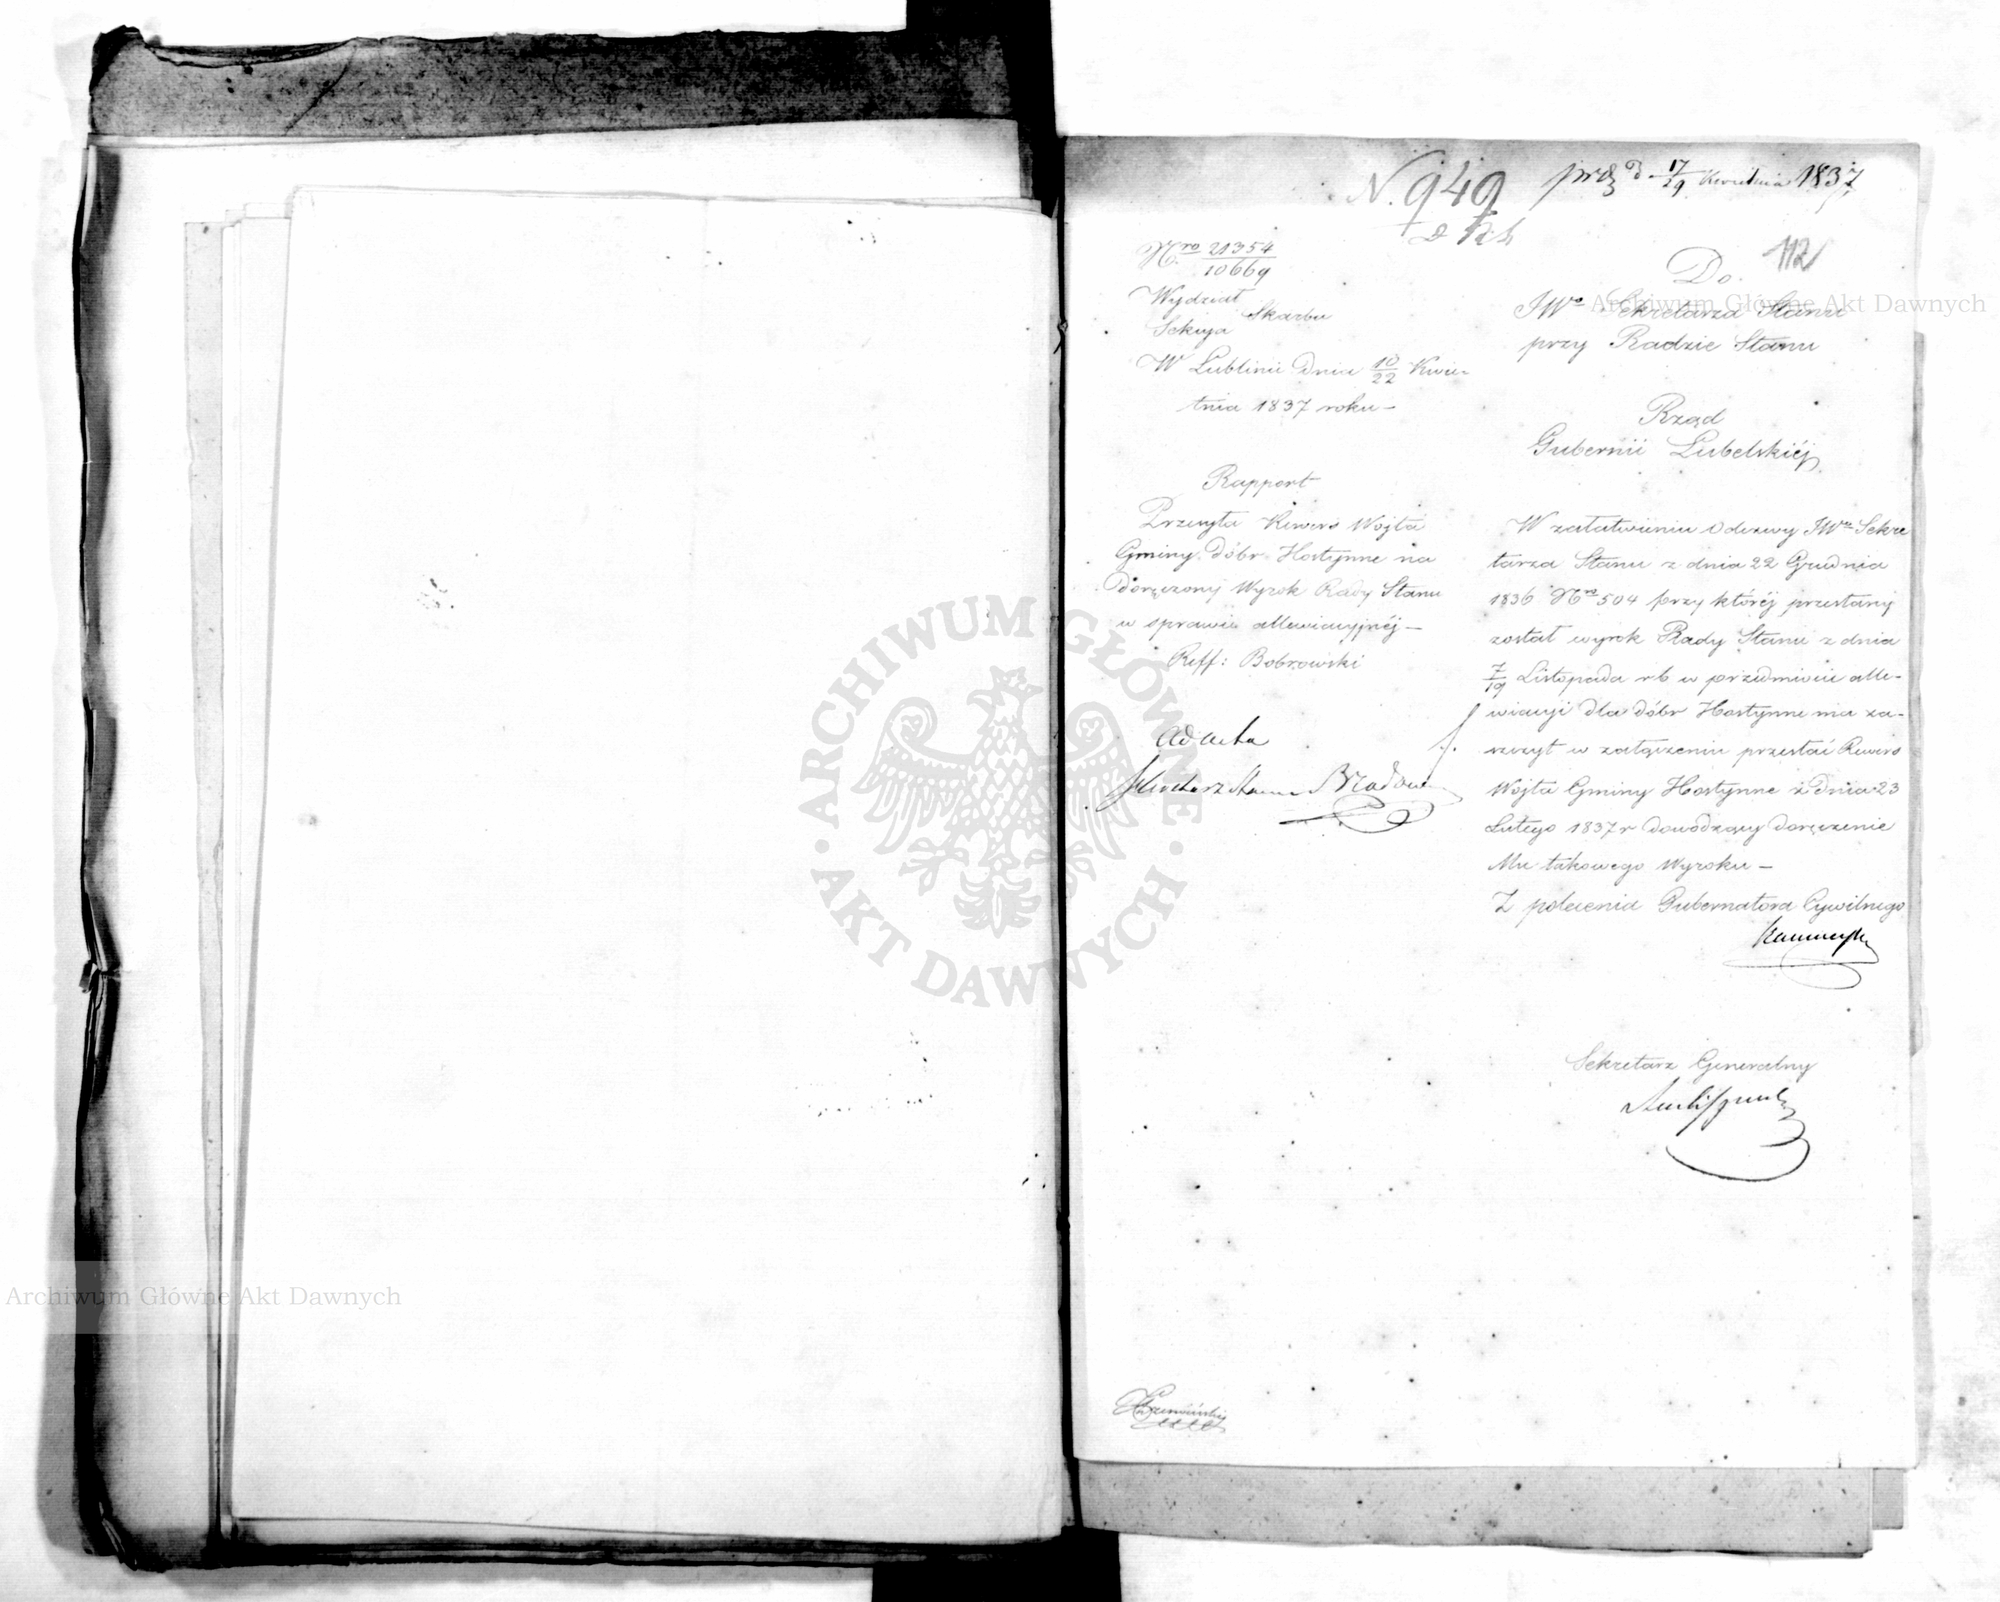 N. 949
prez d 17/29 Kwietnia 1837
112
Nro 21354/10669
Wydział Skarbu
Sekcya
W Lublinie dnia 10/22 Kwie-
tnia 1837 roku —
Rapport
Przesyła Rewers Wojta
Gminy dóbr Hostynne na
doręczony Wyrok Rady Stanu
w sprawie allewiacyjnéj —
Reff: Bobrowski
ad acta
Sekretarz Stanu
Do
JWo Sekretarza Stanu
przy Radzie Stanu
Rząd
Gubernii Lubelskiéj
W załatwieniu Odezwy JWo Sekre
tarza Stanu z dnia 22 Grudnia
1836 Nro 504 przy któréj przesłany
został wyrok Rady Stanu z dnia
7/19 Listopada rb w przedmiocie alle-
wiacyi dla dóbr Hostynne ma za-
szczyt w załączeniu przesłać Rewers
Wojta Gminy Hostynne z dnia 23
Lutego 1837 r dowodzący doręczenie
Mu takowego Wyroku —
Z polecenia Gubernatora Cywilnego
Sekretarz Generalny
Archiwum Główne Akt Dawnych
Archiwum Główne Akt Dawnych
ARCHIWUM GŁÓWNE
AKT DAWNYCH